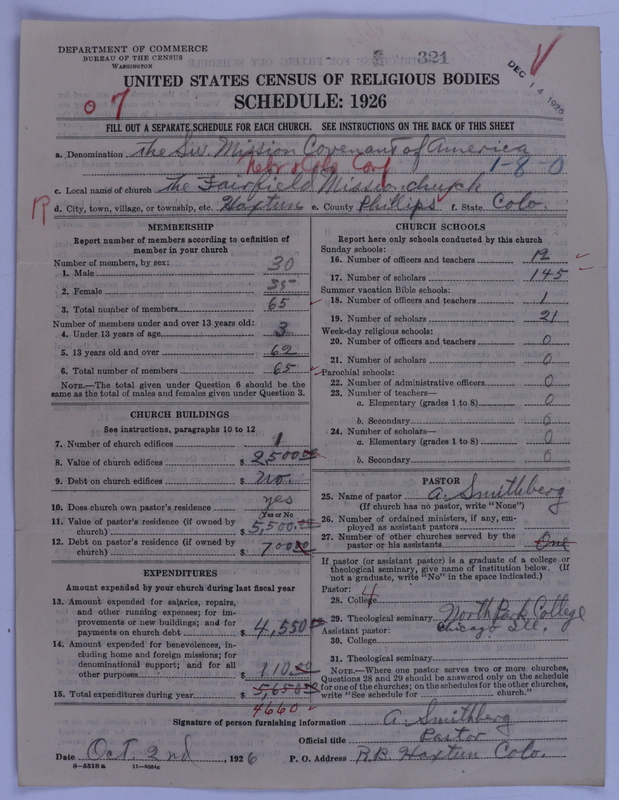 DEPARTMENT OF COMMERCE
BUREAU OF THE CENSUS
WASHINGTON
321
DEC 14 1926
UNITED STATES CENSUS OF RELIGIOUS BODIES
SCHEDULE: 1926
FILL OUT A SEPARATE SCHEDULE FOR EACH CHURCH. SEE INSTRUCTIONS ON THE BACK OF THIS SHEET
07
a. Denomination The Sw. Mission Covenant of America
1-8-0
c. Local name of church The Fairfield Mission church
d. City, town, village, or township, etc. Haxtun e. County Phillips f. State Colo.
MEMBERSHIP
Report number of members according to definition of
member in your church
Number of members, by sex:
1. Male 30
2. Female 35
3. Total number of members 65
Number of members under and over 13 years old:
4. Under 13 years of age 3
5. 13 years old and over 62
6. Total number of members 65
NOTE.—The total given under Question 6 should be the
same as the total of males and females given under Question 3.
CHURCH BUILDINGS
See instructions, paragraphs 10 to 12
7. Number of church edifices 1
8. Value of church edifices $ 2,500.00
9. Debt on church edifices $ No.
10. Does church own pastor's residence yes
Yes or No
11. Value of pastor's residence (if owned by
church) $ 5,500.00
12. Debt on pastor's residence (if owned by
church) $ 700.00
EXPENDITURES
Amount expended by your church during last fiscal year
13. Amount expended for salaries, repairs,
and other running expenses; for im-
provements or new buildings; and for
payments on church debt $ 4,550.00
14. Amount expended for benevolences, in-
cluding home and foreign missions; for
denominational support; and for all
other purposes $ 110.00
15. Total expenditures during year $ 5,650.00
4660
CHURCH SCHOOLS
Report here only schools conducted by this church
Sunday schools:
16. Number of officers and teachers 12
17. Number of scholars 145
Summer vacation Bible schools:
18. Number of officers and teachers 1
19. Number of scholars 21
Week-day religious schools:
20. Number of officers and teachers 0
21. Number of scholars 0
Parochial schools:
22. Number of administrative officers 0
23. Number of teachers—
a. Elementary (grades 1 to 8) 0
b. Secondary 0
24. Number of scholars—
a. Elementary (grades 1 to 8) 0
b. Secondary 0
PASTOR
25. Name of pastor A. Smithberg
(If church has no pastor, write "None")
26. Number of ordained ministers, if any, em-
ployed as assistant pastors
27. Number of other churches served by the
pastor or his assistants One
If pastor (or assistant pastor) is a graduate of a college or
theological seminary, give name of institution below. (If
not a graduate, write "No" in the space indicated.)
Pastor:
28. College 4
29. Theological seminary North Park College
Chicago Ill.
Assistant pastor:
30. College
31. Theological seminary
NOTE.—Where one pastor serves two or more churches,
Questions 28 and 29 should be answered only on the schedule
for one of the churches; on the schedules for the other churches,
write "See schedule for church."
Signature of person furnishing information A. Smithberg
Official title Pastor
Date Oct. 2nd, 1926 P. O. Address R.B. Haxtun Colo.